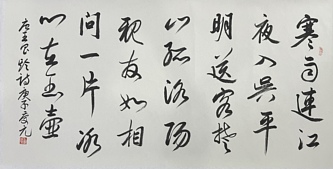 寒雨連江
夜入吳平
明送客楚
山孤洛陽
親友如相
問一片冰
心在玉壺
唐王昌齡詩庚子夏元